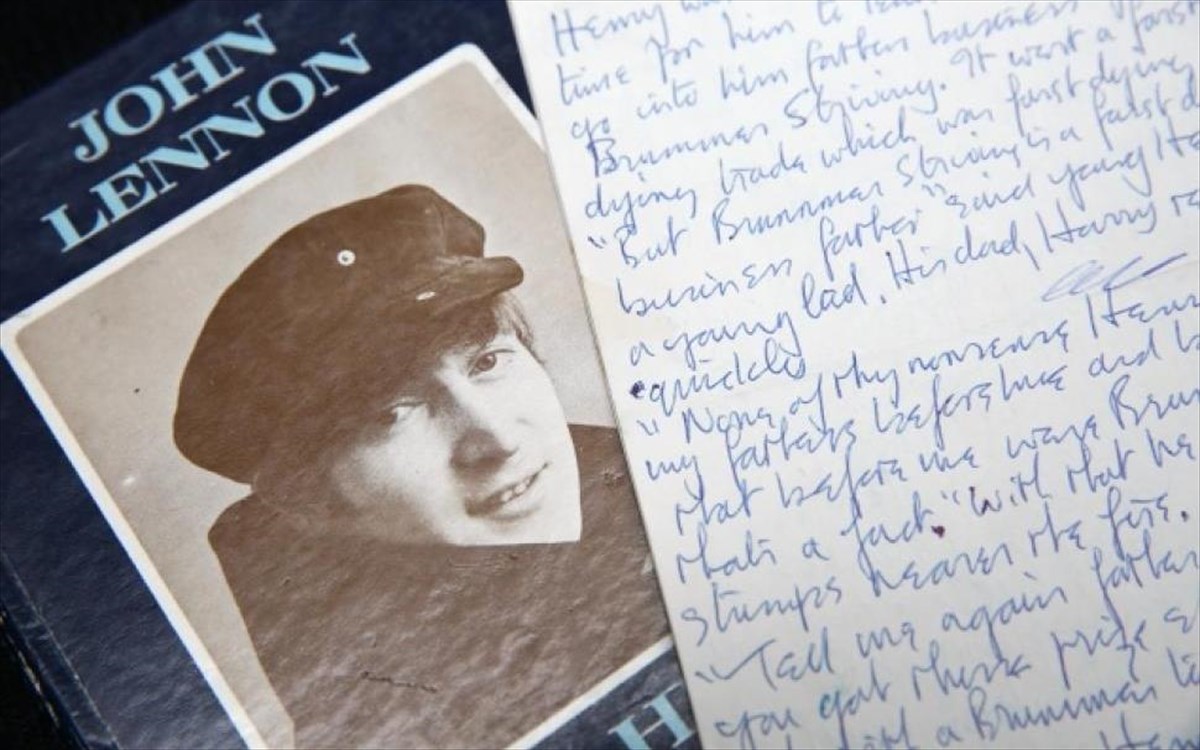 JOHN
LENNON
H
Henry
time for him to
go into him father business
Brummer Striving. It wart a farst
dying trade which was farst dying
"But Brummer Striving is a farst d
business farther" said young He
a young lad. His dad, Harry
quickly
"None of thy nonsense Hen
my farthers before me and b
that before me ware Brum
thats a fact." With that he
stumps nearer the fire.
"Tell me again farther
you got there prize
with a Brummer